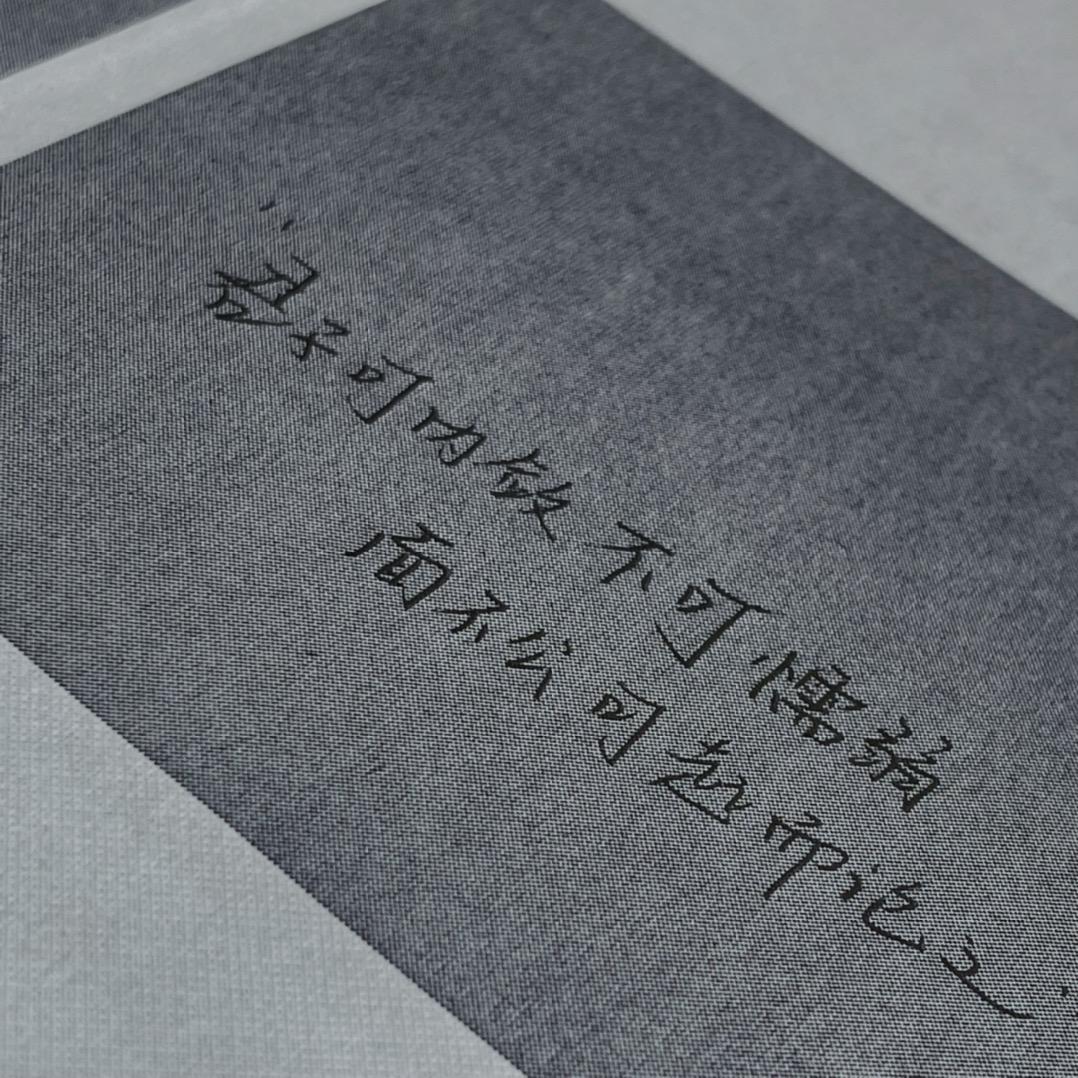 “君子可内敛不可懦弱
面不公可起而论之”